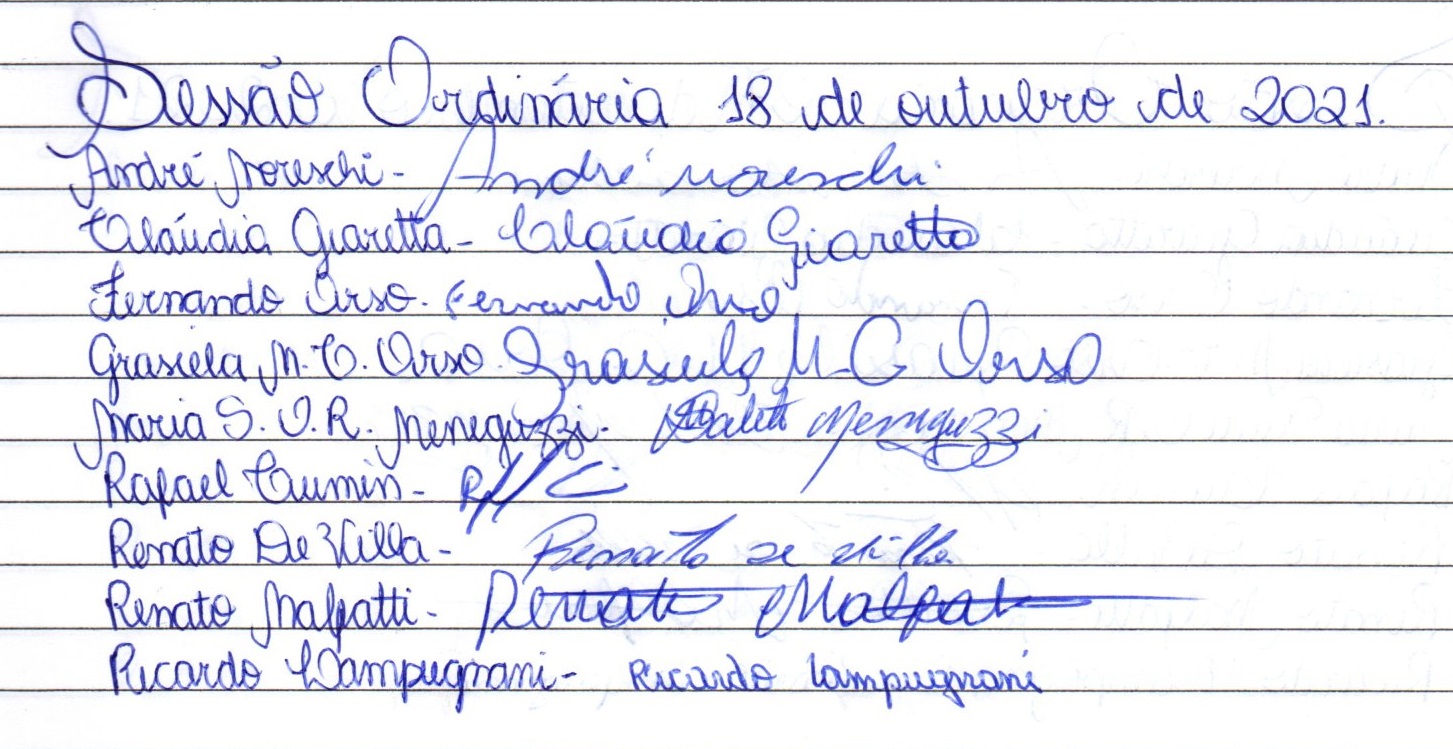 Sessão Ordinária 18 de outubro de 2021.
André Moreschi - André Moreschi
Claúdia Giaretta - Claúdia Giaretta
Fernando Orso. Fernando Orso
Grasiela M. C. Orso. Grasiela M. C. Orso
Maria S. O. R. Meneguzzi. Salete Meneguzzi
Rafael Cumin -
Renato De Villa - Renato de Villa
Renato Malfatti - Renato Malfat
Ricardo Lampugnani - Ricardo Lampugnani